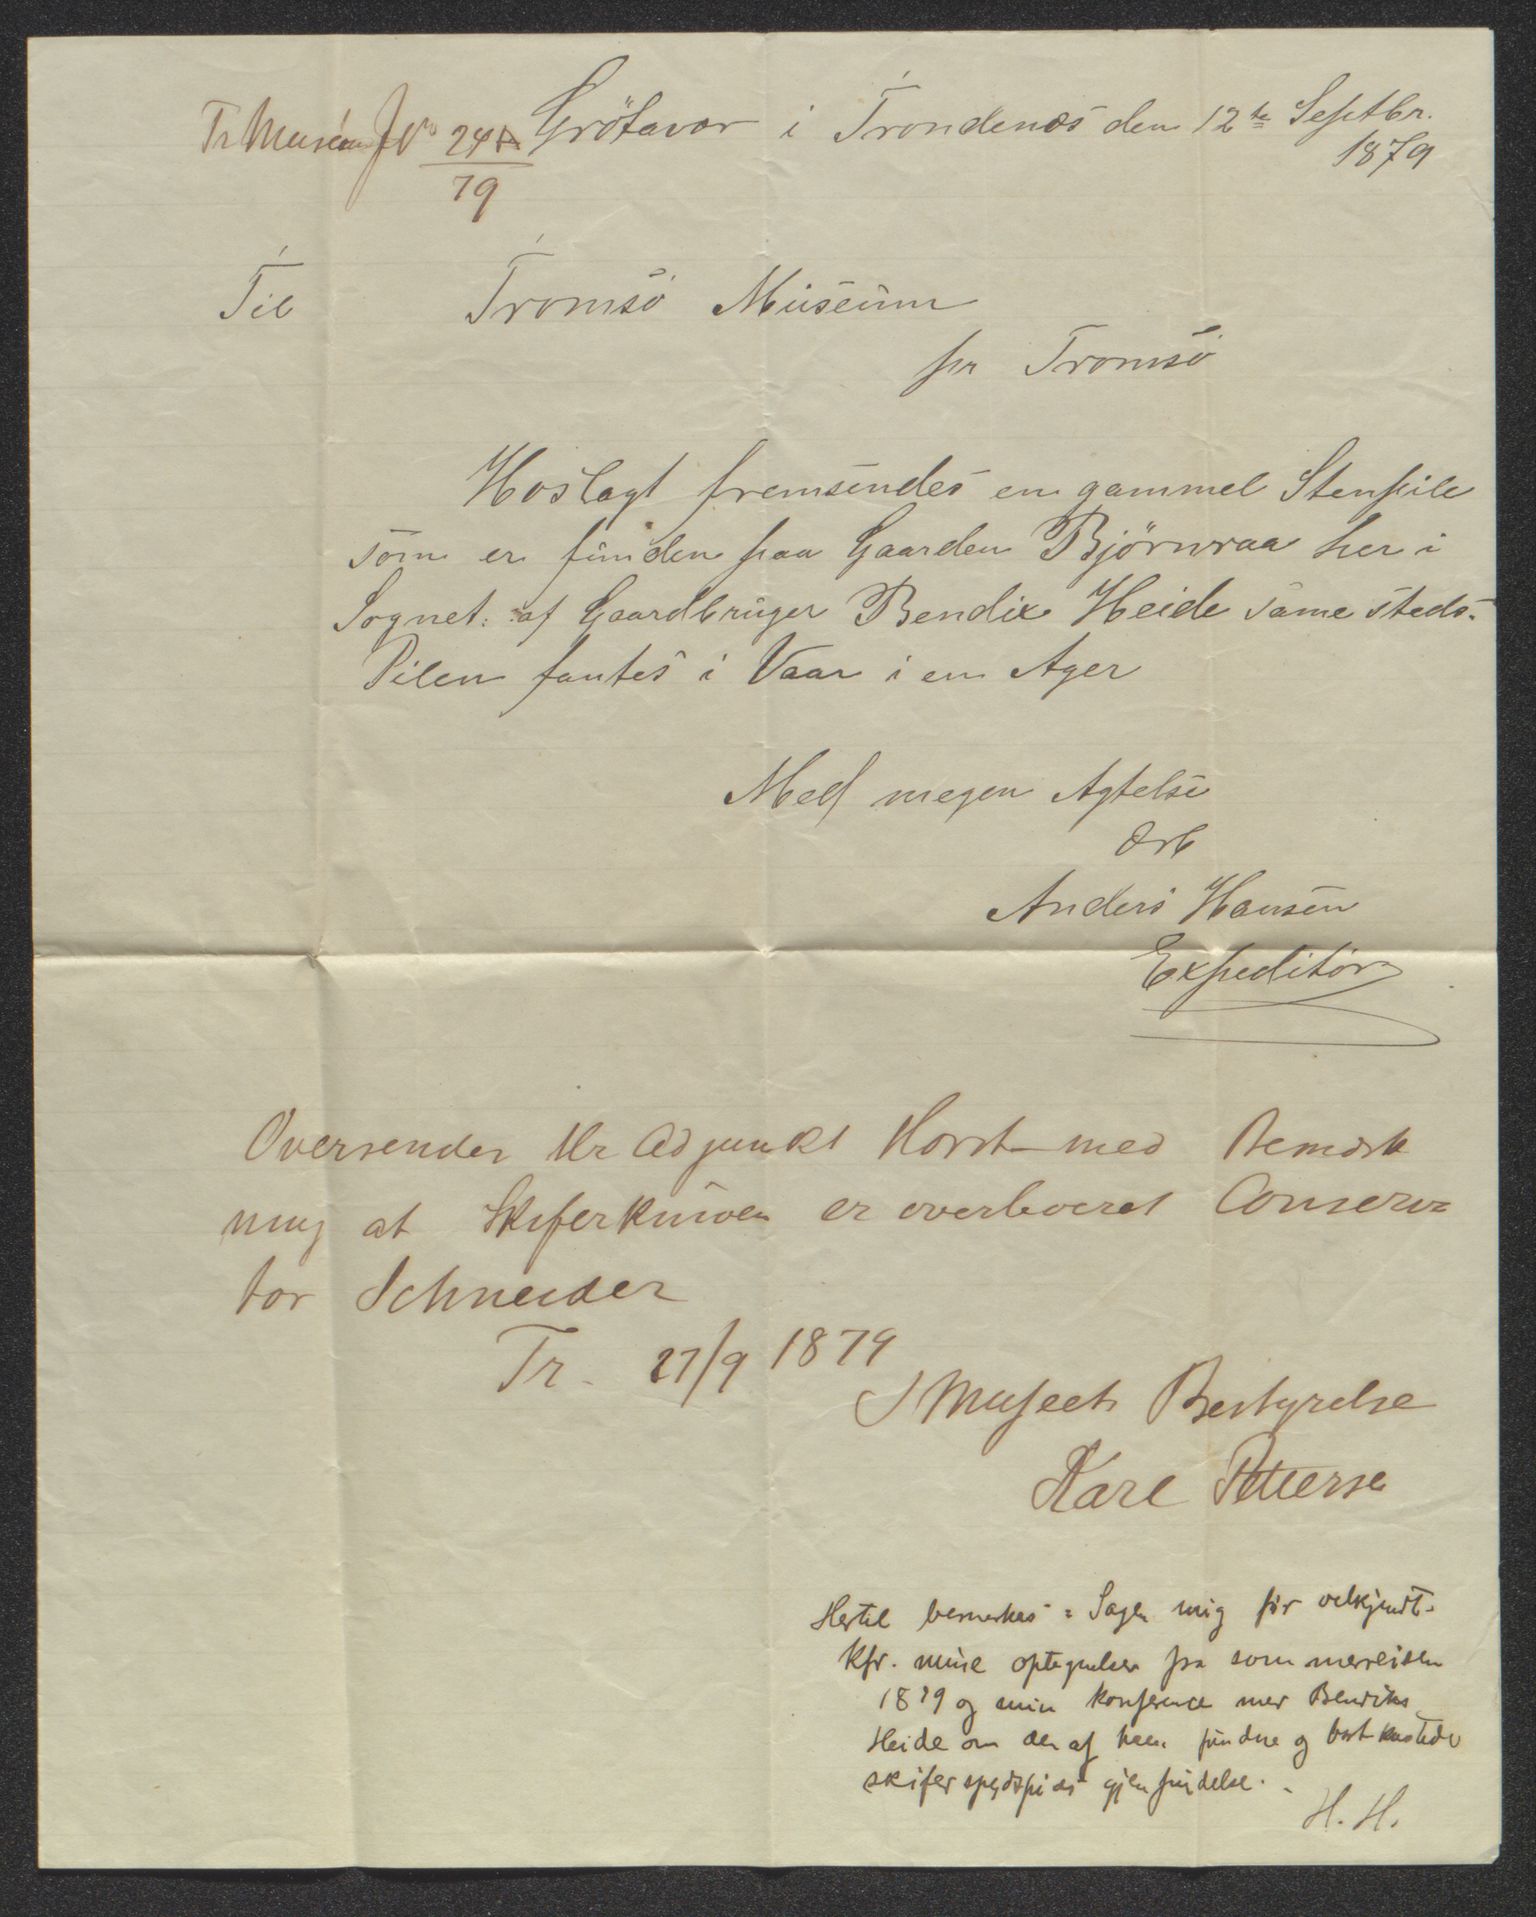 Tr Museum JN° 241 Grötavær i Trondenæs den 12te Septbr.
79
1879
Til Tromsö Museum
pr Tromsö
Hoslagt fremsendes en gammel Stenpile
som er funden paa Gaarden Bjørnraa her i
Sognet: af Gaardbruger Bendix Heide same steds.
Pilen fantes i Vaar i en Ager
Med megen Agtelse
Erb
Anders Hansen
Expeditør
Oversendes Hr Adjunkt Horst med Bemærk
ning at Skiferkniven er overleveret Conserva=
tor Schneider
Tr. 27/9 1879
I Museets Bestyrelse
Karl Pettersen
Hertil bemerkes: Sagen mig før velkjendt.
Kfr. mine optegnelser fra sommerreisen
1879 og min konference med Bendiks
Heide om den af ham fundne og bortkastede
skiferspydspids gjenfindelse. -
H. H.